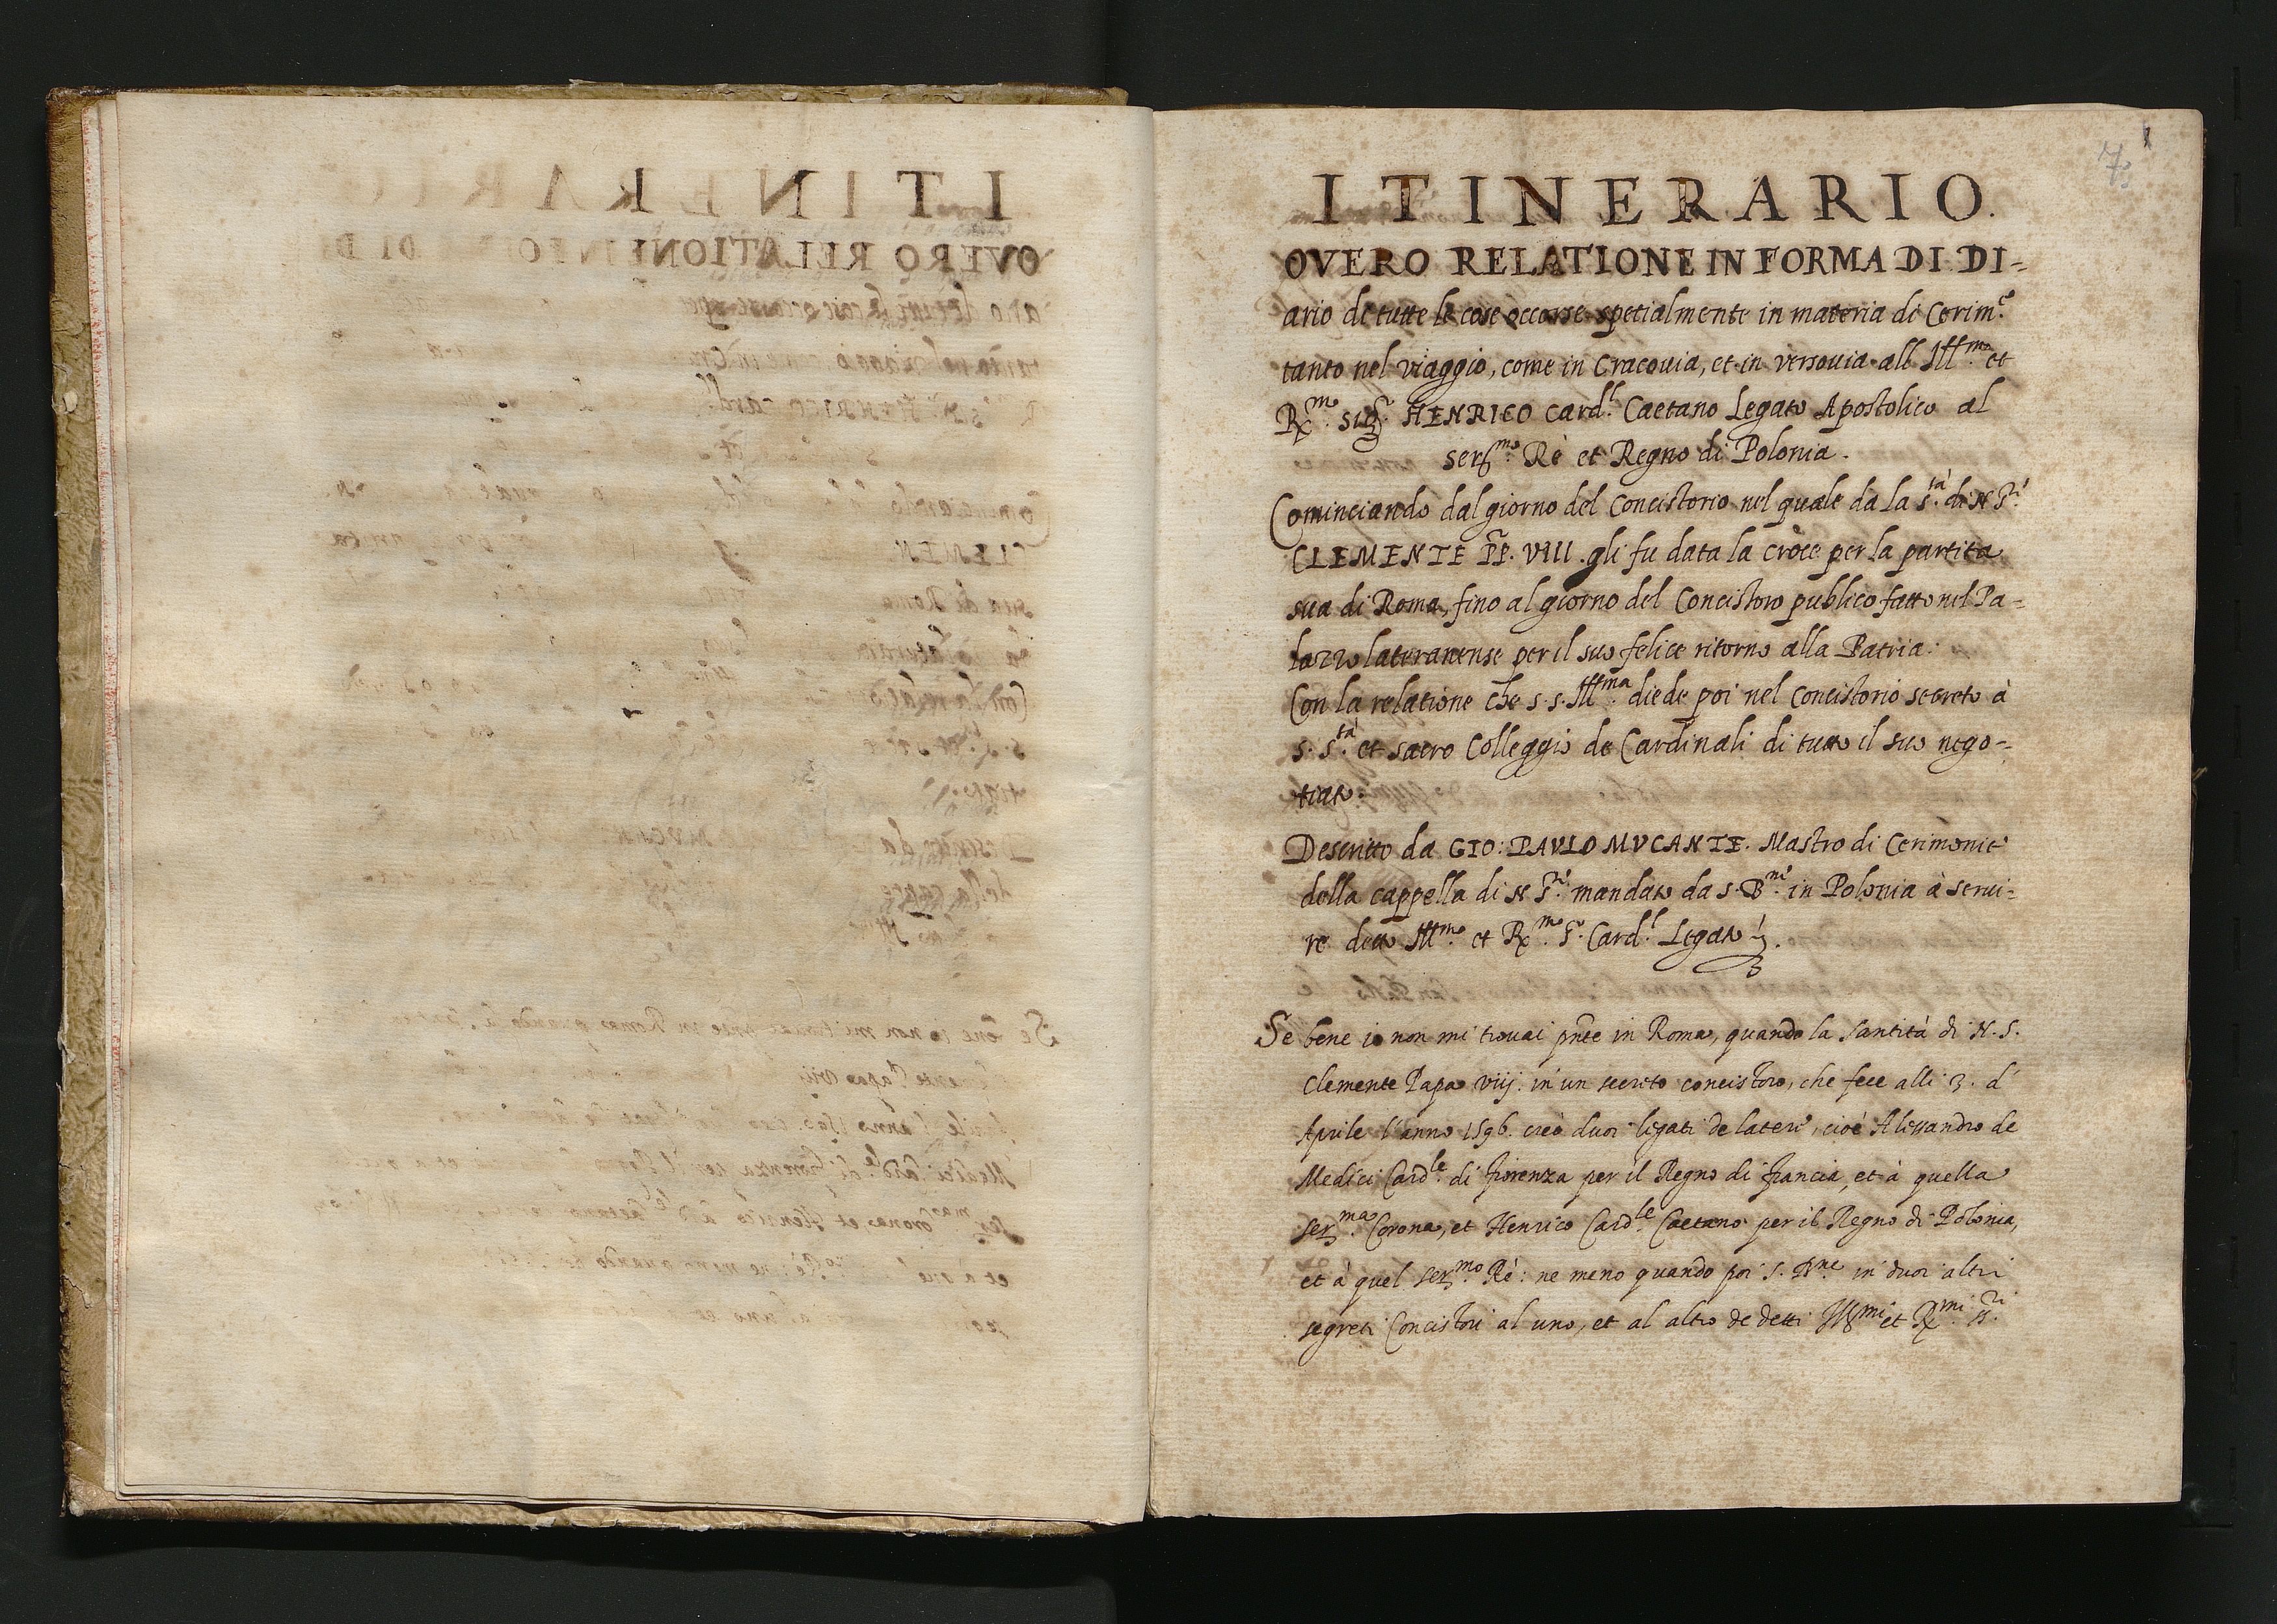 7.
1
ITINERARIO.
OVERO RELATIONE IN FORMA DI DI-
ario de tutte le cose occorse spetialmente in materia di Cerim.e
tanto nel viaggio, come in Cracouia, et in versouia all Ill.mo et
R.mo sig.r HENRICO Card.l Caetano Legato Apostolico al
ser.mo Rè et Regno di Polonia.
Cominciando dal giorno del Concistorio nel quale da la S.tà di N S.re
CLEMENTE PP. VIII. gli fu data la cròce per la partita
sua di Roma, fino al giorno del Concistoro publico fatto nel Pa-
lazzo lateranense per il suo felice ritorno alla Patria.
Con la relatione che s. s. Ill.ma diede poi nel Concistorio secreto à
s. s.tà et sacro Colleggio de Cardinali di tutto il suo nego-
tiato.
Descritto da GIO: PAVLO MVCANTE. Mastro di Cerimonie
della cappella di N S.re mandato da s. B.ne in Polonia à serui-
re detto Ill.mo et R.mo S.r Card.l Legato.
Se bene io non mi trouai pnte in Roma, quando la santità di N. S.
Clemente Papa viij. in un secreto concistoro, che fece alli 3. d'
Aprile l'anno 1596. creò duoi legati de latere, cioè Alessandro de
Medici Card.le di fiorenza per il Regno di francia, et à quella
ser.ma Corona, et Henrico Card.le Caetano per il Regno di Polonia,
et à quel ser.mo Rè: ne meno quando poi s. B.ne in duoi altri
segreti Concistori al uno, et al altro de detti Ill.mi et R.mi S.ri